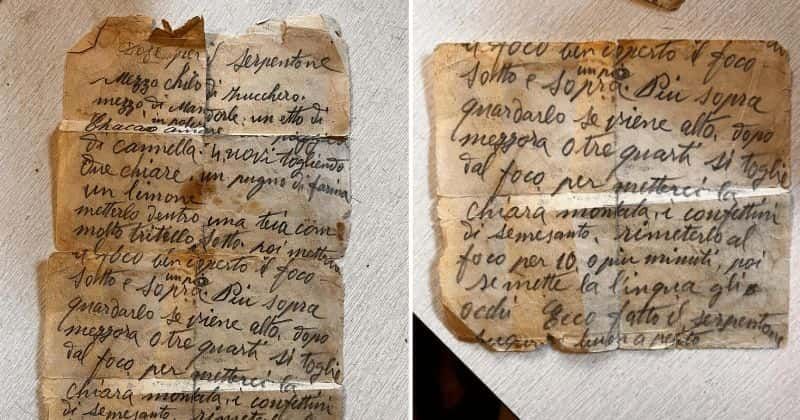 per il Serpentone
Mezzo chilo di zucchero.
mezzo di Mandorle. un etto di
in polv
Chacao amaro
di cannella. 4 uova togliendo
due chiare. un pugno di farina
un limone
metterlo dentro una teia con
molto tritello sotto. poi metter
il foco ben coperto il foco
un po
sotto e sopra. Più sopra
guardarlo se viene alto. dopo
mezzora o tre quarti si toglie
dal foco per metterci la
chiara montata, i confettini
di semesanto. rimeterlo
il foco ben coperto il foco
un po
sotto e sopra. Più sopra
guardarlo se viene alto. dopo
mezzora o tre quarti si toglie
dal foco per metterci la
chiara montata, i confettini
di semesanto. rimeterlo al
foco per 10 o piu minuti, poi
si mette la lingua gli
occhi Ecco fatto il serpentone
buon apetito